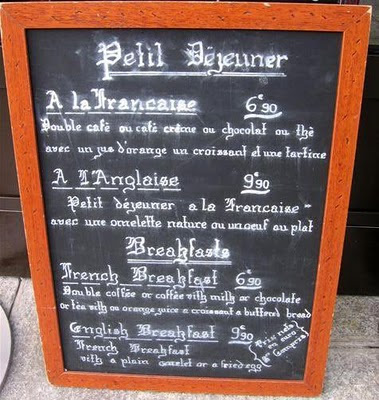 Petit Déjeuner
A la Francaise 6€90
Double café ou café crème ou chocolat ou thé
avec un jus d'orange un croissant et une tartine
A L'Anglaise 9€90
Petit déjeuner a la Francaise
avec une omelette nature ou un oeuf au plat
Breakfasts
French Breakfast 6€90
Double coffee or coffee with milk or chocolate
or tea with an orange juice a croissant a buttered bread
English Breakfast 9€90
French Breakfast
with a plain omelet or a fried egg
Prix nets
en euro